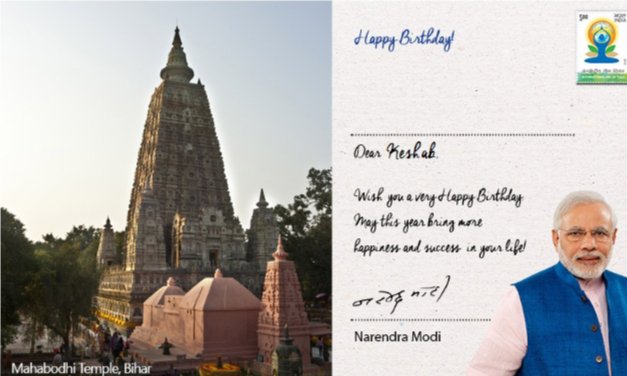 Happy Birthday!
5.00
INDIA
Dear Keshab,
Wish you a very Happy Birthday
May this year bring more
happiness and success in your life!
Narendra Modi
Mahabodhi Temple, Bihar